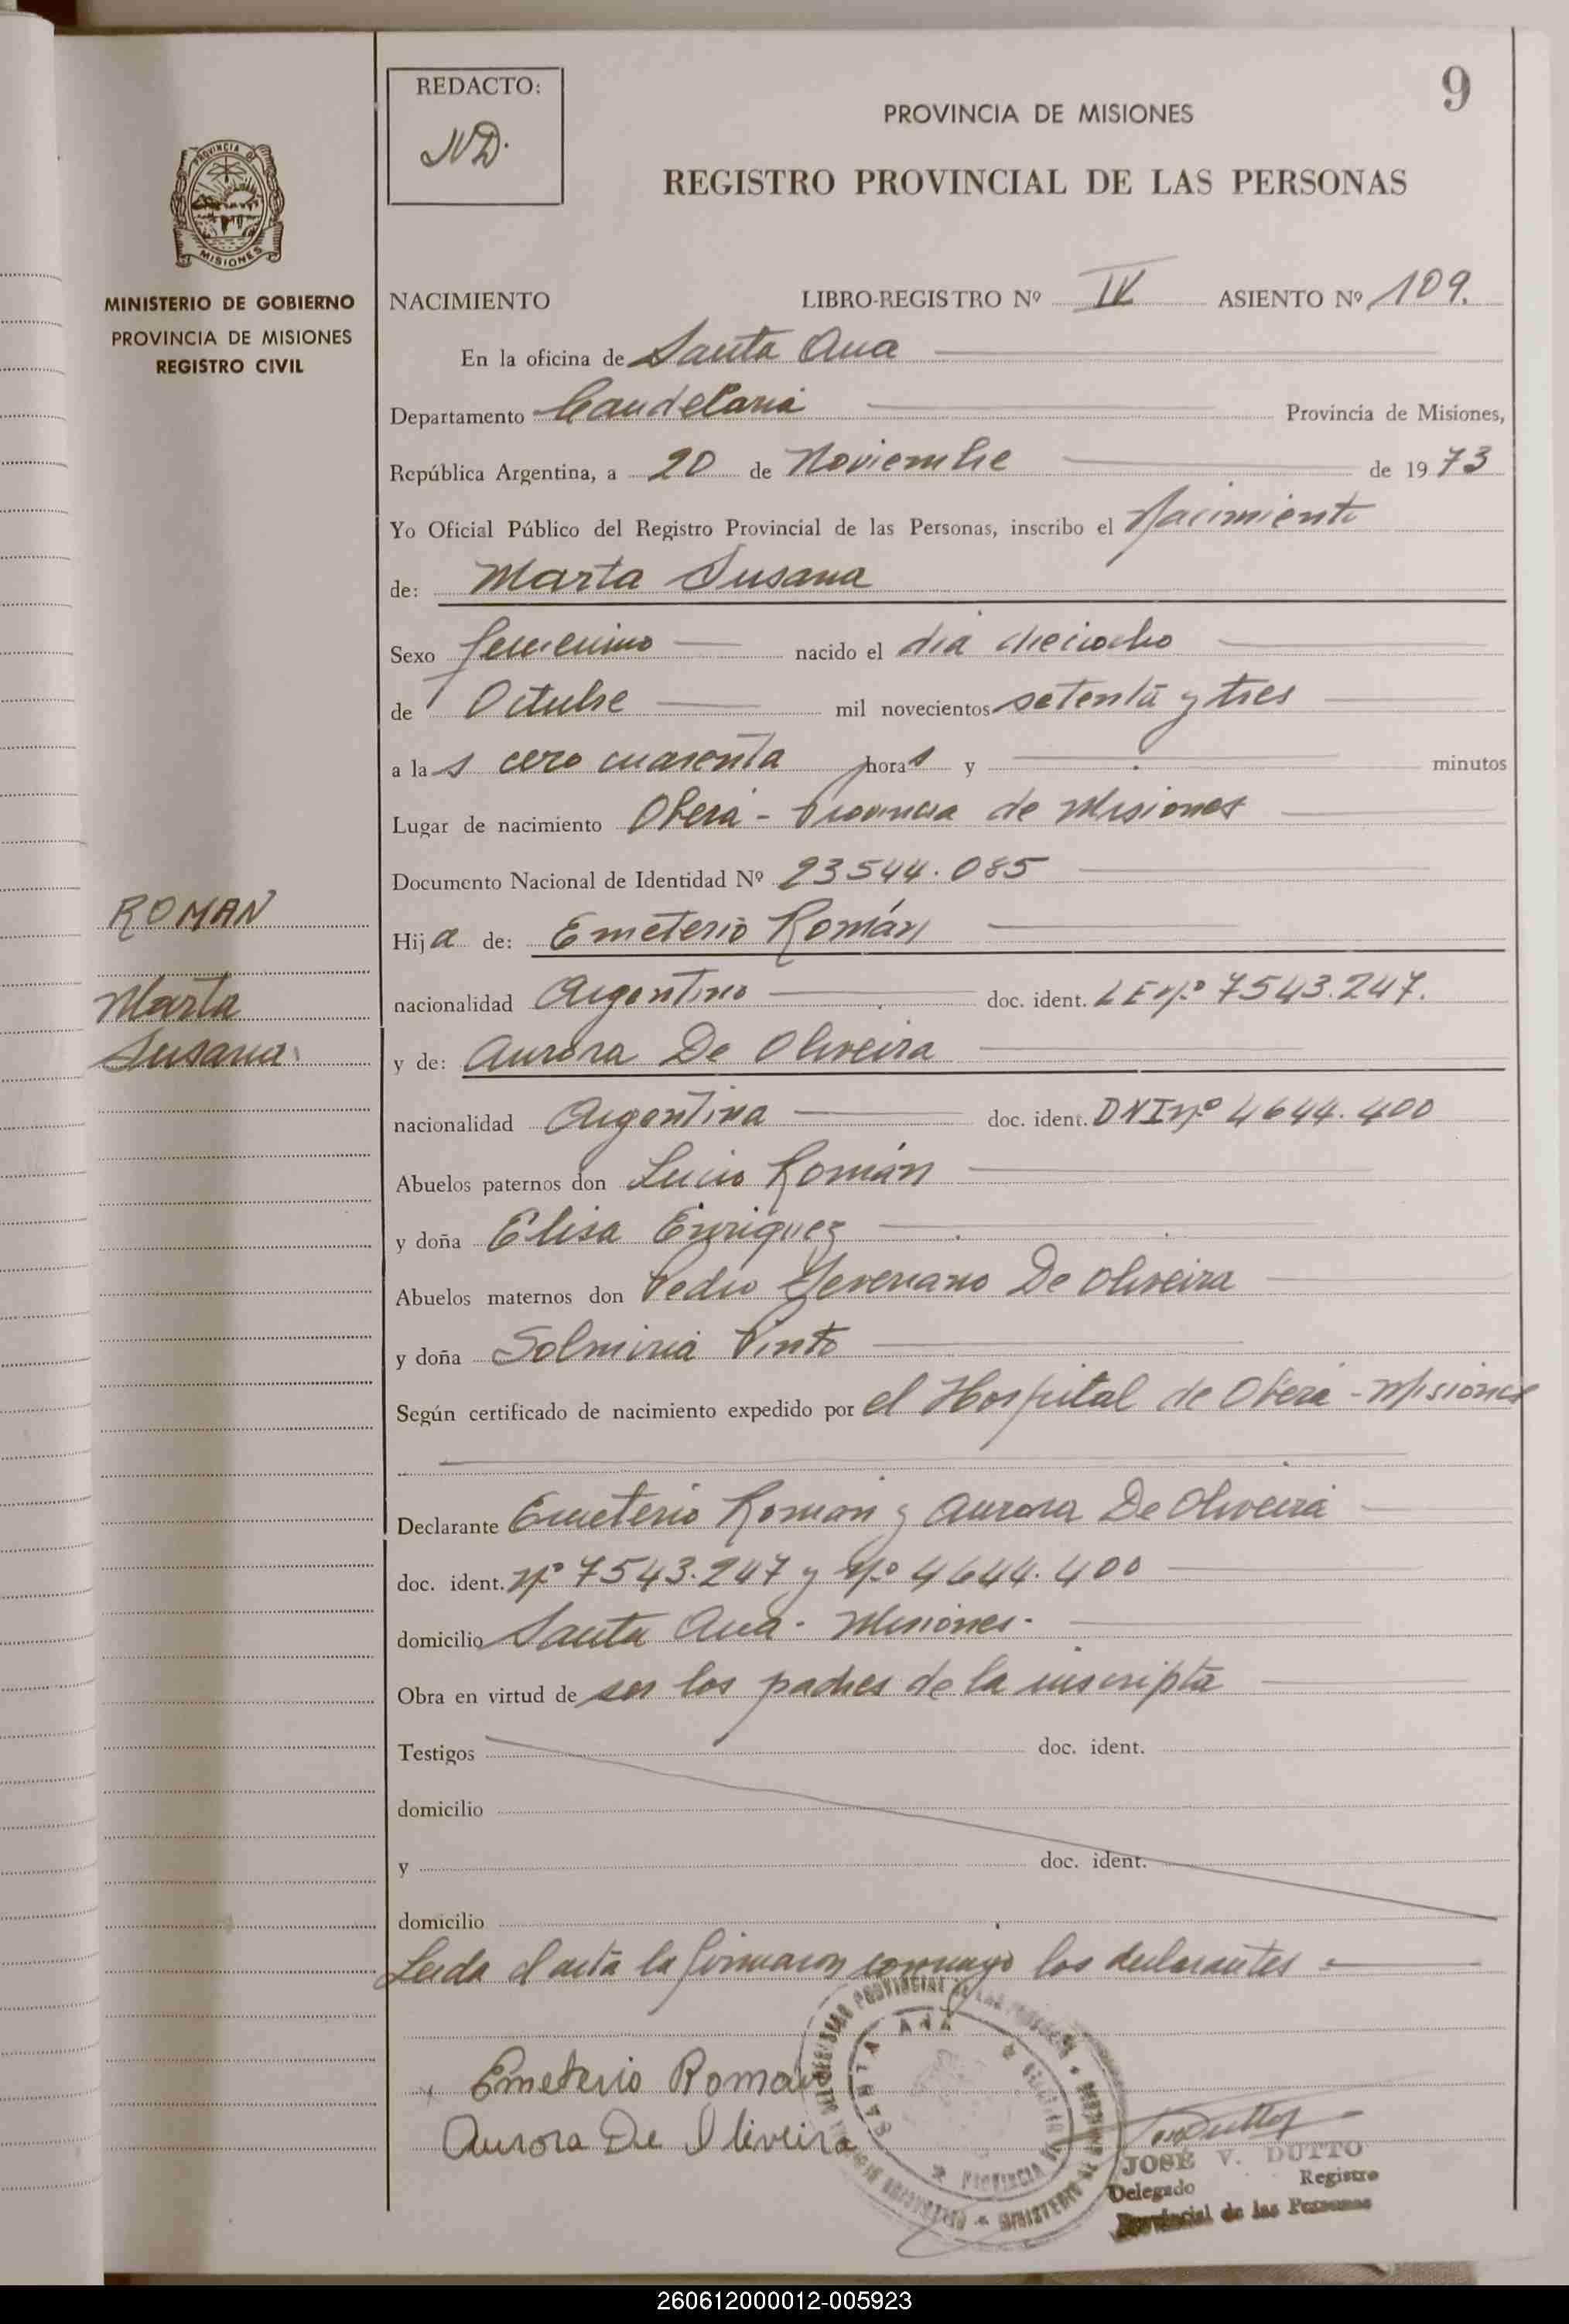 9
REDACTO:
JVD.
PROVINCIA DE MISIONES
REGISTRO PROVINCIAL DE LAS PERSONAS
PROVINCIA DE
MISIONES
MINISTERIO DE GOBIERNO
PROVINCIA DE MISIONES
REGISTRO CIVIL
NACIMIENTO LIBRO-REGISTRO Nº IV ASIENTO Nº 109.
En la oficina de Santa Ana
Departamento Candelaria Provincia de Misiones,
República Argentina, a 20 de Noviembre de 1973
Yo Oficial Público del Registro Provincial de las Personas, inscribo el Nacimiento
de: Marta Susana
Sexo femenino nacido el día dieciocho
de Octubre mil novecientos setenta y tres
a las cero cuarenta horas y minutos
Lugar de nacimiento Oberá - Provincia de Misiones
Documento Nacional de Identidad Nº 23544.085
ROMAN
Marta
Susana
Hija de: Emeterio Román
nacionalidad Argentino doc. ident. LE nº 7543.247.
y de: Aurora De Oliveira
nacionalidad Argentina doc. ident. DNI nº 4644.400
Abuelos paternos don Lucio Román
y doña Elisa Enriquez
Abuelos maternos don Pedro Severiano De Oliveira
y doña Solmiria Pinto
Según certificado de nacimiento expedido por el Hospital de Oberá - Misiones
Declarante Emeterio Roman y Aurora De Oliveira
doc. ident. Nº 7543.247 y Nº 4644.400
domicilio Santa Ana - Misiones -
Obra en virtud de ser los padres de la inscripta
Testigos doc. ident.
domicilio
y doc. ident.
domicilio
Leida el acta la firmaron conmigo los declarantes
Emeterio Roman
Aurora De Oliveira
SANTA ANA
PROVINCIA
MINISTERIO
JOSE V. DUTTO
Delegado Registro
Provincial de las Personas
260612000012-005923